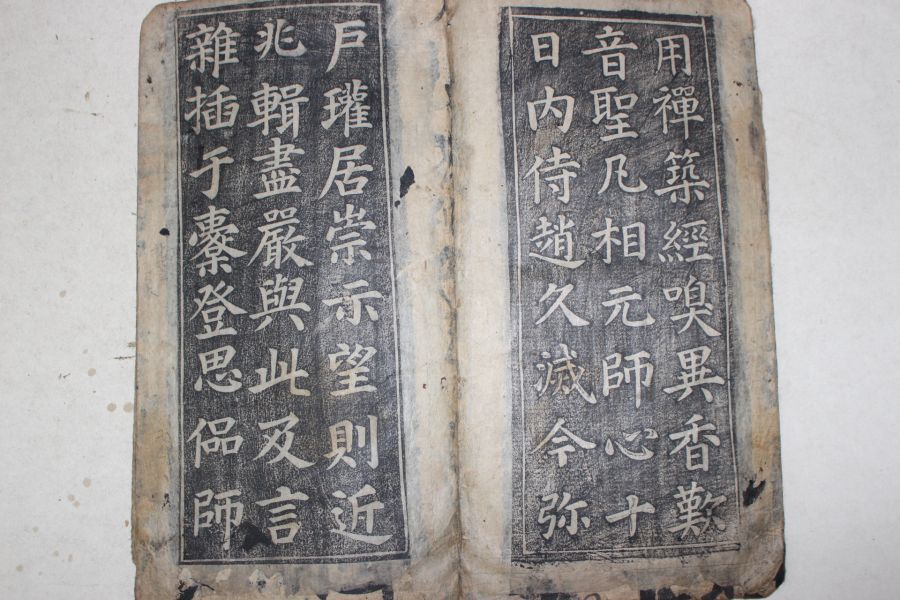 用禪築經嗅異香歎
音聖凡相元師心十
日内侍趙久滅今弥
戸瓘居崇示望則近
兆輯盡嚴與此及言
雜插于橐登思侣師